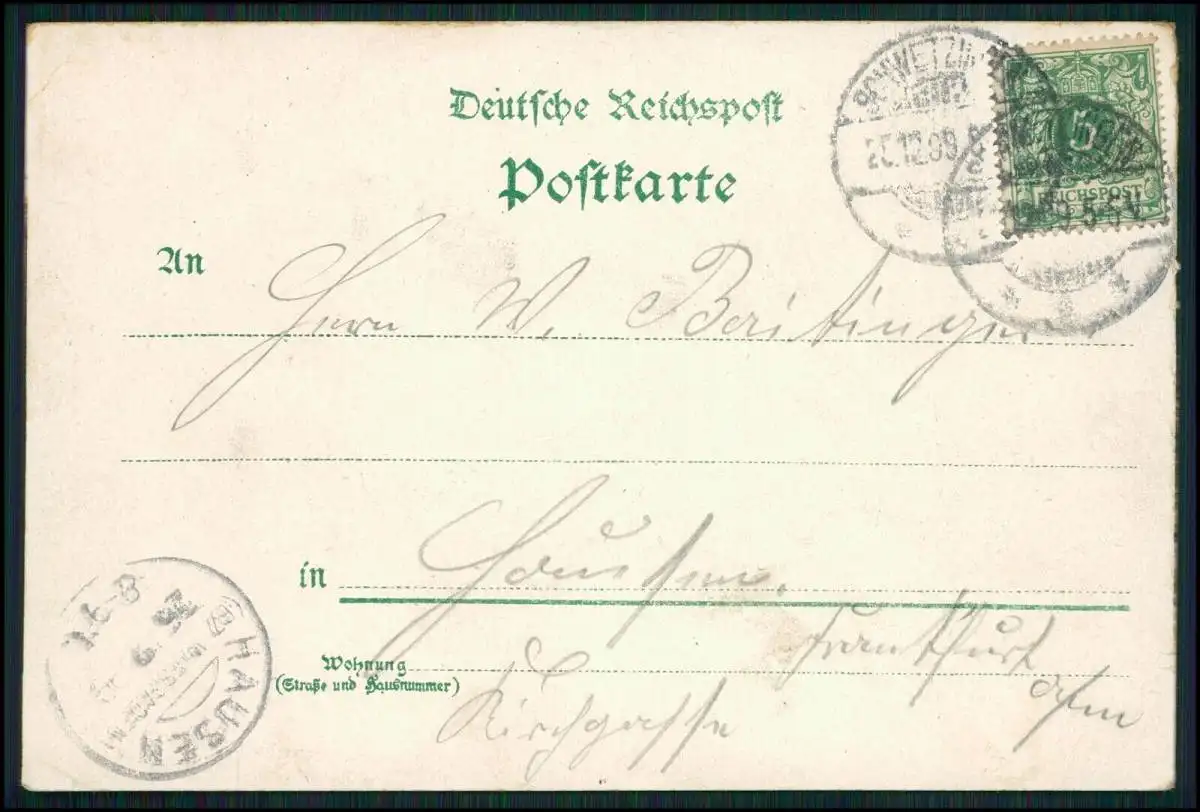 Deutsche Reichspost
Postkarte
SCHWETZINGEN
25.12.99
5
REICHSPOST
5-6 V
An
Herrn W. Beitinger
in Hausen.
Frankfurt
a/m
Wohnung
(Straße und Hausnummer)
Kirchgasse
HAUSEN